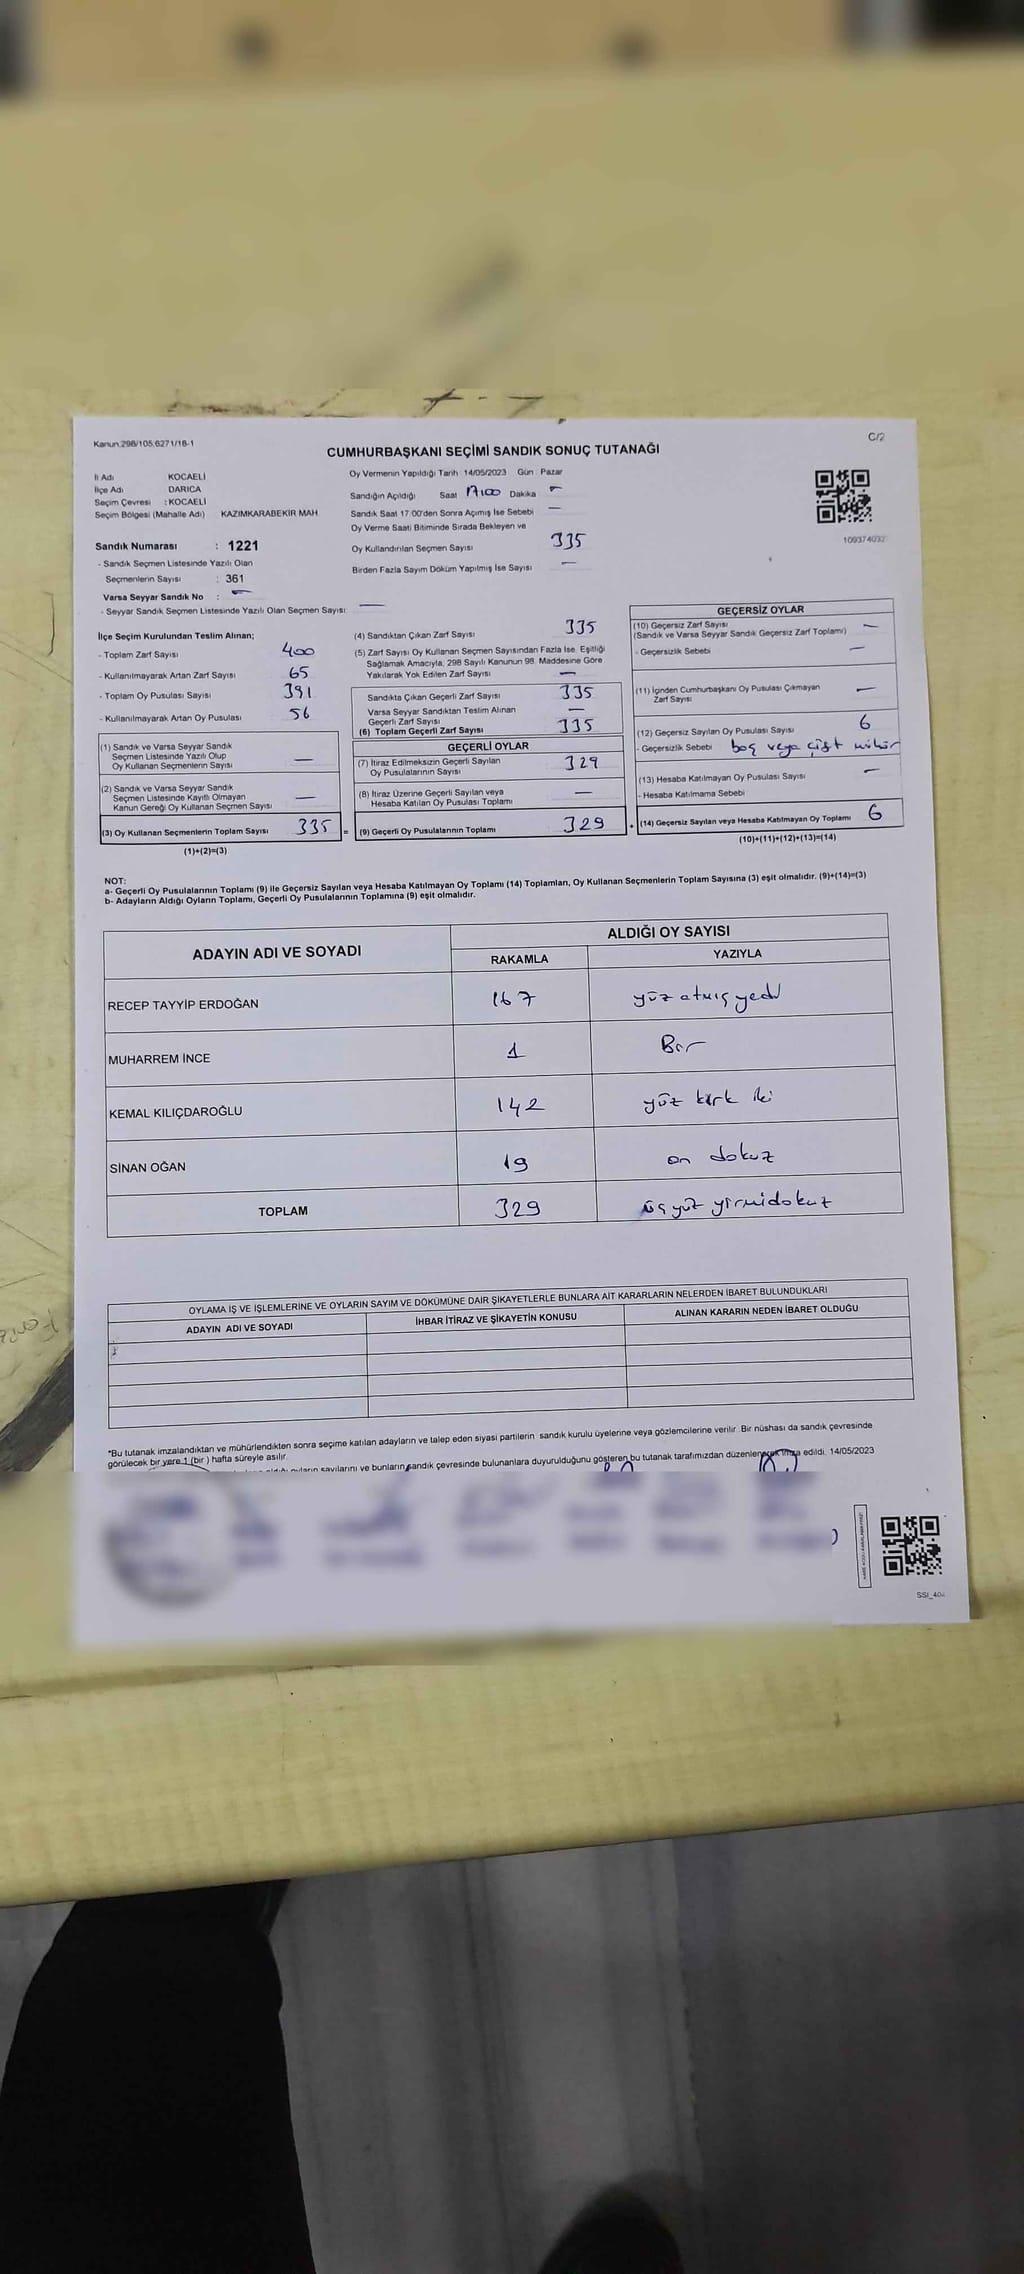 Kanun.298/105,6271/18-1
C/2
CUMHURBAŞKANI SEÇİMİ SANDIK SONUÇ TUTANAĞI
İl Adı KOCAELİ
İlçe Adı DARICA
Seçim Çevresi : KOCAELİ
Seçim Bölgesi (Mahalle Adı) KAZIMKARABEKİR MAH
Sandık Numarası : 1221
- Sandık Seçmen Listesinde Yazılı Olan
Seçmenlerin Sayısı : 361
Varsa Seyyar Sandık No : —
- Seyyar Sandık Seçmen Listesinde Yazılı Olan Seçmen Sayısı: —
Oy Vermenin Yapıldığı Tarih 14/05/2023 Gün : Pazar
Sandığın Açıldığı Saat 17:00 Dakika —
Sandık Saat 17:00'den Sonra Açımış İse Sebebi —
Oy Verme Saati Bitiminde Sırada Bekleyen ve
Oy Kullandırılan Seçmen Sayısı 335
Birden Fazla Sayım Döküm Yapılmış İse Sayısı —
109374032
İlçe Seçim Kurulundan Teslim Alınan;
- Toplam Zarf Sayısı 400
- Kullanılmayarak Artan Zarf Sayısı 65
- Toplam Oy Pusulası Sayısı 391
- Kullanılmayarak Artan Oy Pusulası 56
(1) Sandık ve Varsa Seyyar Sandık
Seçmen Listesinde Yazılı Olup
Oy Kullanan Seçmenlerin Sayısı —
(2) Sandık ve Varsa Seyyar Sandık
Seçmen Listesinde Kayıtlı Olmayan
Kanun Gereği Oy Kullanan Seçmen Sayısı —
(3) Oy Kullanan Seçmenlerin Toplam Sayısı 335 =
(1)+(2)=(3)
(4) Sandıktan Çıkan Zarf Sayısı 335
(5) Zarf Sayısı Oy Kullanan Seçmen Sayısından Fazla İse, Eşitliği
Sağlamak Amacıyla, 298 Sayılı Kanunun 98. Maddesine Göre
Yakılarak Yok Edilen Zarf Sayısı —
Sandıkta Çıkan Geçerli Zarf Sayısı 335
Varsa Seyyar Sandıktan Teslim Alınan
Geçerli Zarf Sayısı —
(6) Toplam Geçerli Zarf Sayısı 335
GEÇERLİ OYLAR
(7) İtiraz Edilmeksizin Geçerli Sayılan
Oy Pusulalarının Sayısı 329
(8) İtiraz Üzerine Geçerli Sayılan veya
Hesaba Katılan Oy Pusulası Toplamı —
(9) Geçerli Oy Pusulalarının Toplamı 329 +
GEÇERSİZ OYLAR
(10) Geçersiz Zarf Sayısı
(Sandık ve Varsa Seyyar Sandık Geçersiz Zarf Toplamı) —
- Geçersizlik Sebebi —
(11) İçinden Cumhurbaşkanı Oy Pusulası Çıkmayan
Zarf Sayısı —
(12) Geçersiz Sayılan Oy Pusulası Sayısı 6
- Geçersizlik Sebebi boş veya çift mühür
(13) Hesaba Katılmayan Oy Pusulası Sayısı —
- Hesaba Katılmama Sebebi
(14) Geçersiz Sayılan veya Hesaba Katılmayan Oy Toplamı 6
(10)+(11)+(12)+(13)=(14)
NOT:
a- Geçerli Oy Pusulalarının Toplamı (9) ile Geçersiz Sayılan veya Hesaba Katılmayan Oy Toplamı (14) Toplamları, Oy Kullanan Seçmenlerin Toplam Sayısına (3) eşit olmalıdır. (9)+(14)=(3)
b- Adayların Aldığı Oyların Toplamı, Geçerli Oy Pusulalarının Toplamına (9) eşit olmalıdır.
ADAYIN ADI VE SOYADI ALDIĞI OY SAYISI
RAKAMLA YAZIYLA
RECEP TAYYİP ERDOĞAN 167 yüz atmış yedi
MUHARREM İNCE 1 Bir
KEMAL KILIÇDAROĞLU 142 yüz kırk iki
SİNAN OĞAN 19 on dokuz
TOPLAM 329 üçyüz yirmidokuz
OYLAMA İŞ VE İŞLEMLERİNE VE OYLARIN SAYIM VE DÖKÜMÜNE DAİR ŞİKAYETLERLE BUNLARA AİT KARARLARIN NELERDEN İBARET BULUNDUKLARI
ADAYIN ADI VE SOYADI İHBAR İTİRAZ VE ŞİKAYETİN KONUSU ALINAN KARARIN NEDEN İBARET OLDUĞU
*Bu tutanak imzalandıktan ve mühürlendikten sonra seçime katılan adayların ve talep eden siyasi partilerin sandık kurulu üyelerine veya gözlemcilerine verilir. Bir nüshası da sandık çevresinde
görülecek bir yere 1 (bir) hafta süreyle asılır.
oyların sayılarını ve bunların sandık çevresinde bulunanlara duyurulduğunu gösteren bu tutanak tarafımızdan düzenlenerek imza edildi. 14/05/2023